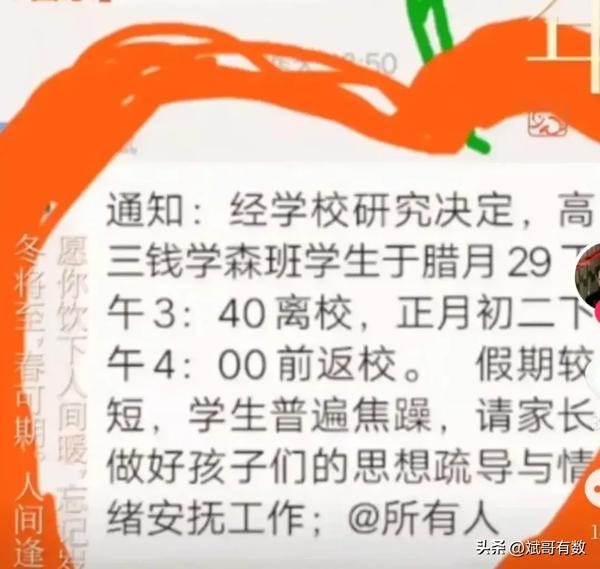 通知：经学校研究决定，高
三钱学森班学生于腊月29下
午3：40离校，正月初二下
午4：00前返校。 假期较
短，学生普遍焦躁，请家长
做好孩子们的思想疏导与情
绪安抚工作；@所有人
愿你饮下人间暖，忘记岁
冬将至，春可期。人间逢
头条 @斌哥有数